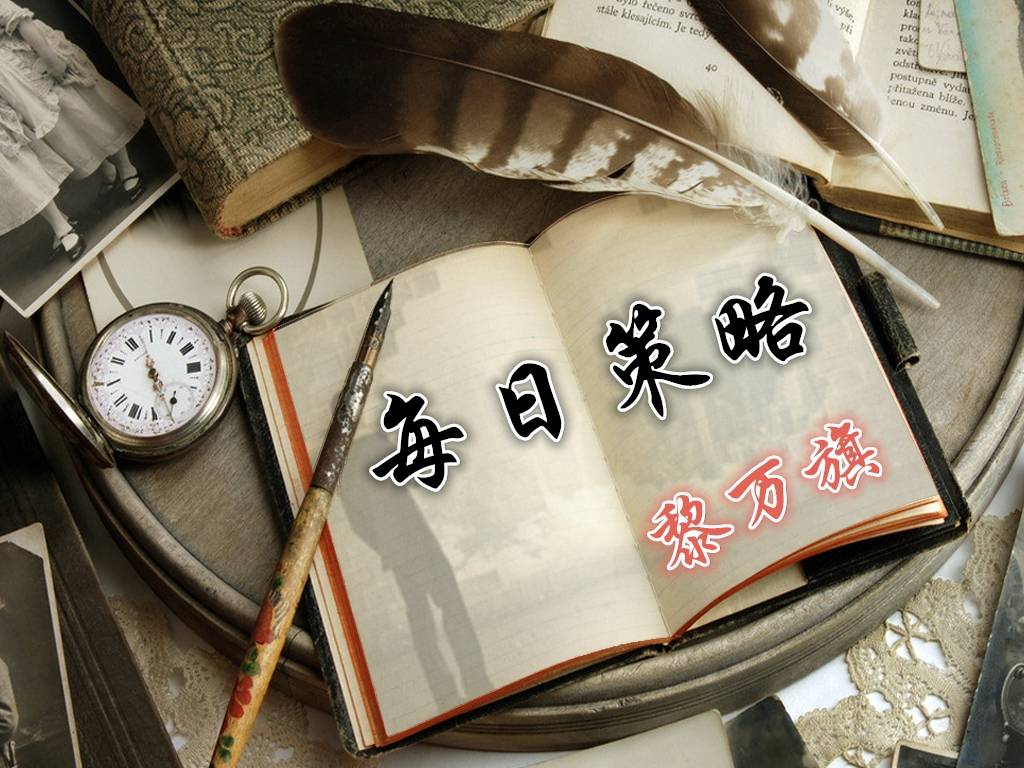 每日策略
黎万旗
było řečeno svr
stále klesajícím. Je tedy
40
postupně vyda
přitažena blíže.
enou změnu. Je